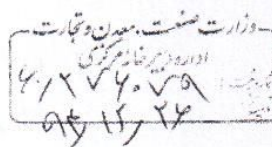 وزارت صنعت، معدن و تجارت
اداره دبیرخانه مرکزی
۶۰/۲۷۶۰۷۹
۹۴/۱۲/۲۶